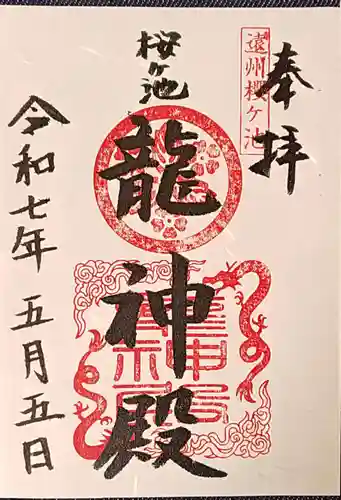 奉拝
遠州櫻ケ池
桜ヶ池
龍神殿
令和七年五月五日